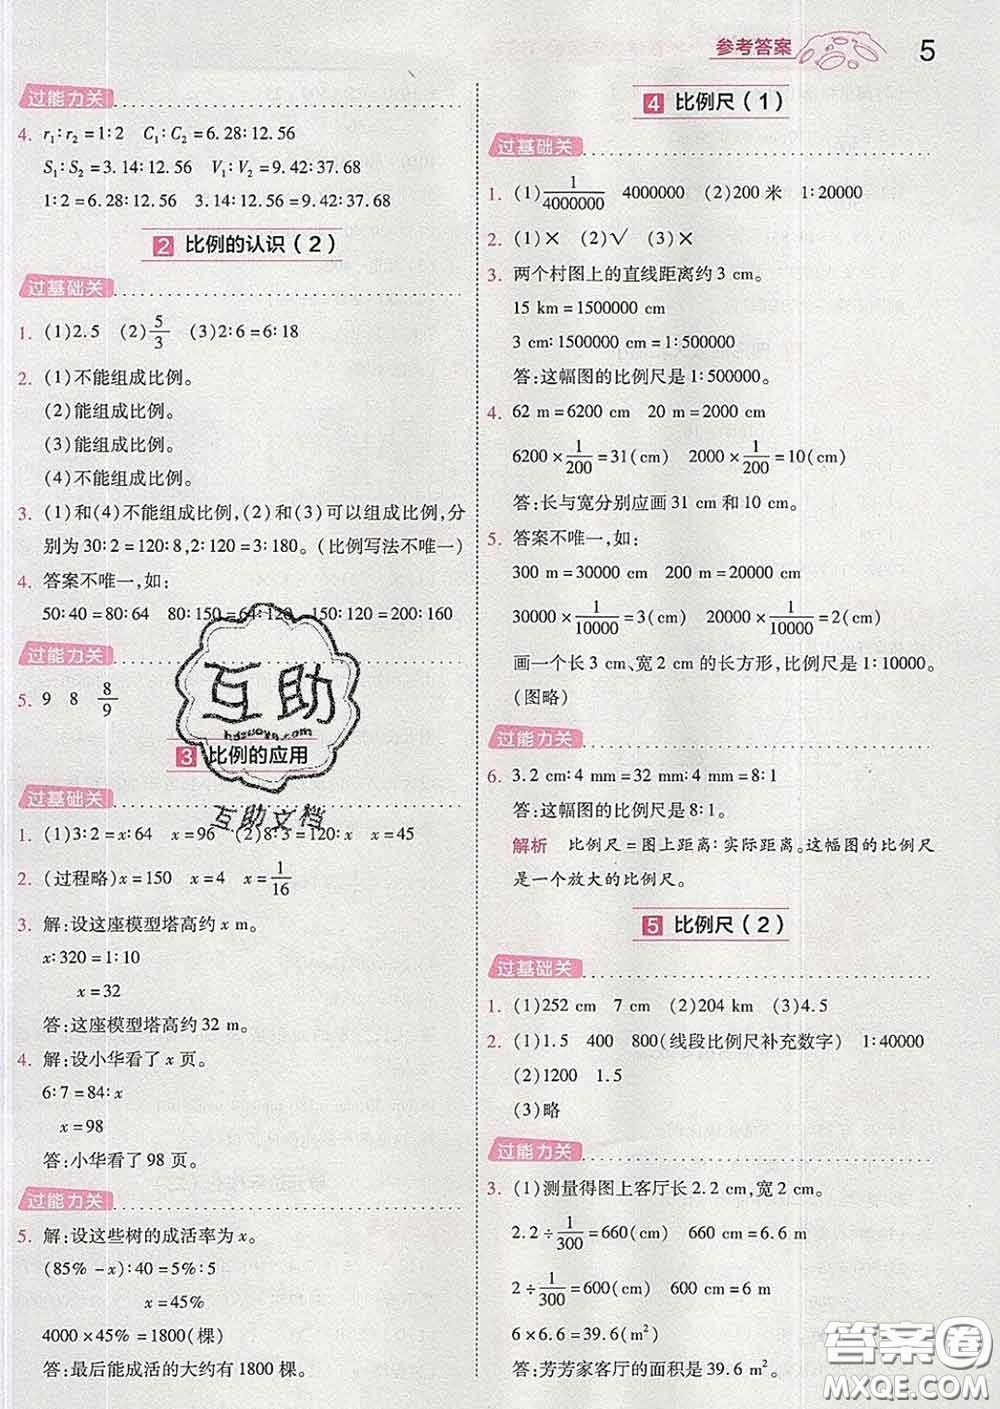 参考答案 5
过能力关
4. r₁∶r₂=1∶2 C₁∶C₂=6.28∶12.56
S₁∶S₂=3.14∶12.56 V₁∶V₂=9.42∶37.68
1∶2=6.28∶12.56 3.14∶12.56=9.42∶37.68
2 比例的认识(2)
过基础关
1. (1)2.5 (2)5/3 (3)2∶6=6∶18
2. (1)不能组成比例。
(2)能组成比例。
(3)能组成比例。
(4)不能组成比例。
3. (1)和(4)不能组成比例,(2)和(3)可以组成比例,分
别为30∶2=120∶8,2∶120=3∶180。(比例写法不唯一)
4. 答案不唯一,如:
50∶40=80∶64 80∶150=64∶120 150∶120=200∶160
过能力关
5. 9 8 8/9
3 比例的应用
过基础关
1. (1)3∶2=x∶64 x=96 (2)8∶3=120∶x x=45
2. (过程略)x=150 x=4 x=1/16
3. 解:设这座模型塔高约x m。
x∶320=1∶10
x=32
答:这座模型塔高约32 m。
4. 解:设小华看了x页。
6∶7=84∶x
x=98
答:小华看了98页。
过能力关
5. 解:设这些树的成活率为x。
(85%-x)∶40=5%∶5
x=45%
4000×45%=1800(棵)
答:最后能成活的大约有1800棵。
4 比例尺(1)
过基础关
1. (1)1/4000000 4000000 (2)200米 1∶20000
2. (1)× (2)√ (3)×
3. 两个村图上的直线距离约3 cm。
15 km=1500000 cm
3 cm∶1500000 cm=1∶500000
答:这幅图的比例尺是1∶500000。
4. 62 m=6200 cm 20 m=2000 cm
6200×1/200=31(cm) 2000×1/200=10(cm)
答:长与宽分别应画31 cm和10 cm。
5. 答案不唯一,如:
300 m=30000 cm 200 m=20000 cm
30000×1/10000=3(cm) 20000×1/10000=2(cm)
画一个长3 cm、宽2 cm的长方形,比例尺是1∶10000。
(图略)
过能力关
6. 3.2 cm∶4 mm=32 mm∶4 mm=8∶1
答:这幅图的比例尺是8∶1。
解析 比例尺=图上距离∶实际距离。这幅图的比例尺
是一个放大的比例尺。
5 比例尺(2)
过基础关
1. (1)252 cm 7 cm (2)204 km (3)4.5
2. (1)1.5 400 800(线段比例尺补充数字) 1∶40000
(2)1200 1.5
(3)略
过能力关
3. (1)测量得图上客厅长2.2 cm,宽2 cm。
2.2÷1/300=660(cm) 660 cm=6.6 m
2÷1/300=600(cm) 600 cm=6 m
6×6.6=39.6(m²)
答:芳芳家客厅的面积是39.6 m²。
互助
hdzuoye.com
互助文档
答案圈
MXQE.COM